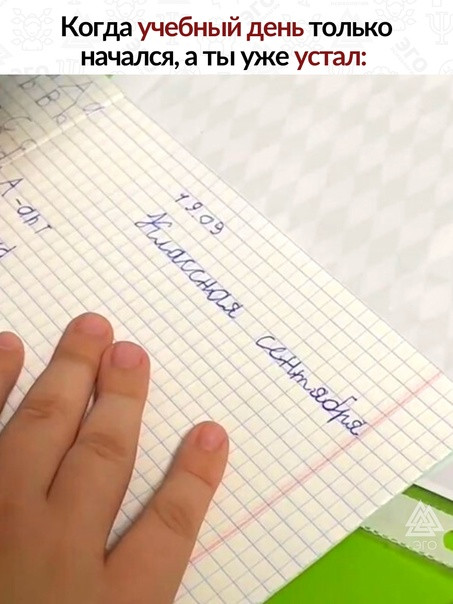 Когда учебный день только
начался, а ты уже устал:
А
19.09
Классная сентября
эго